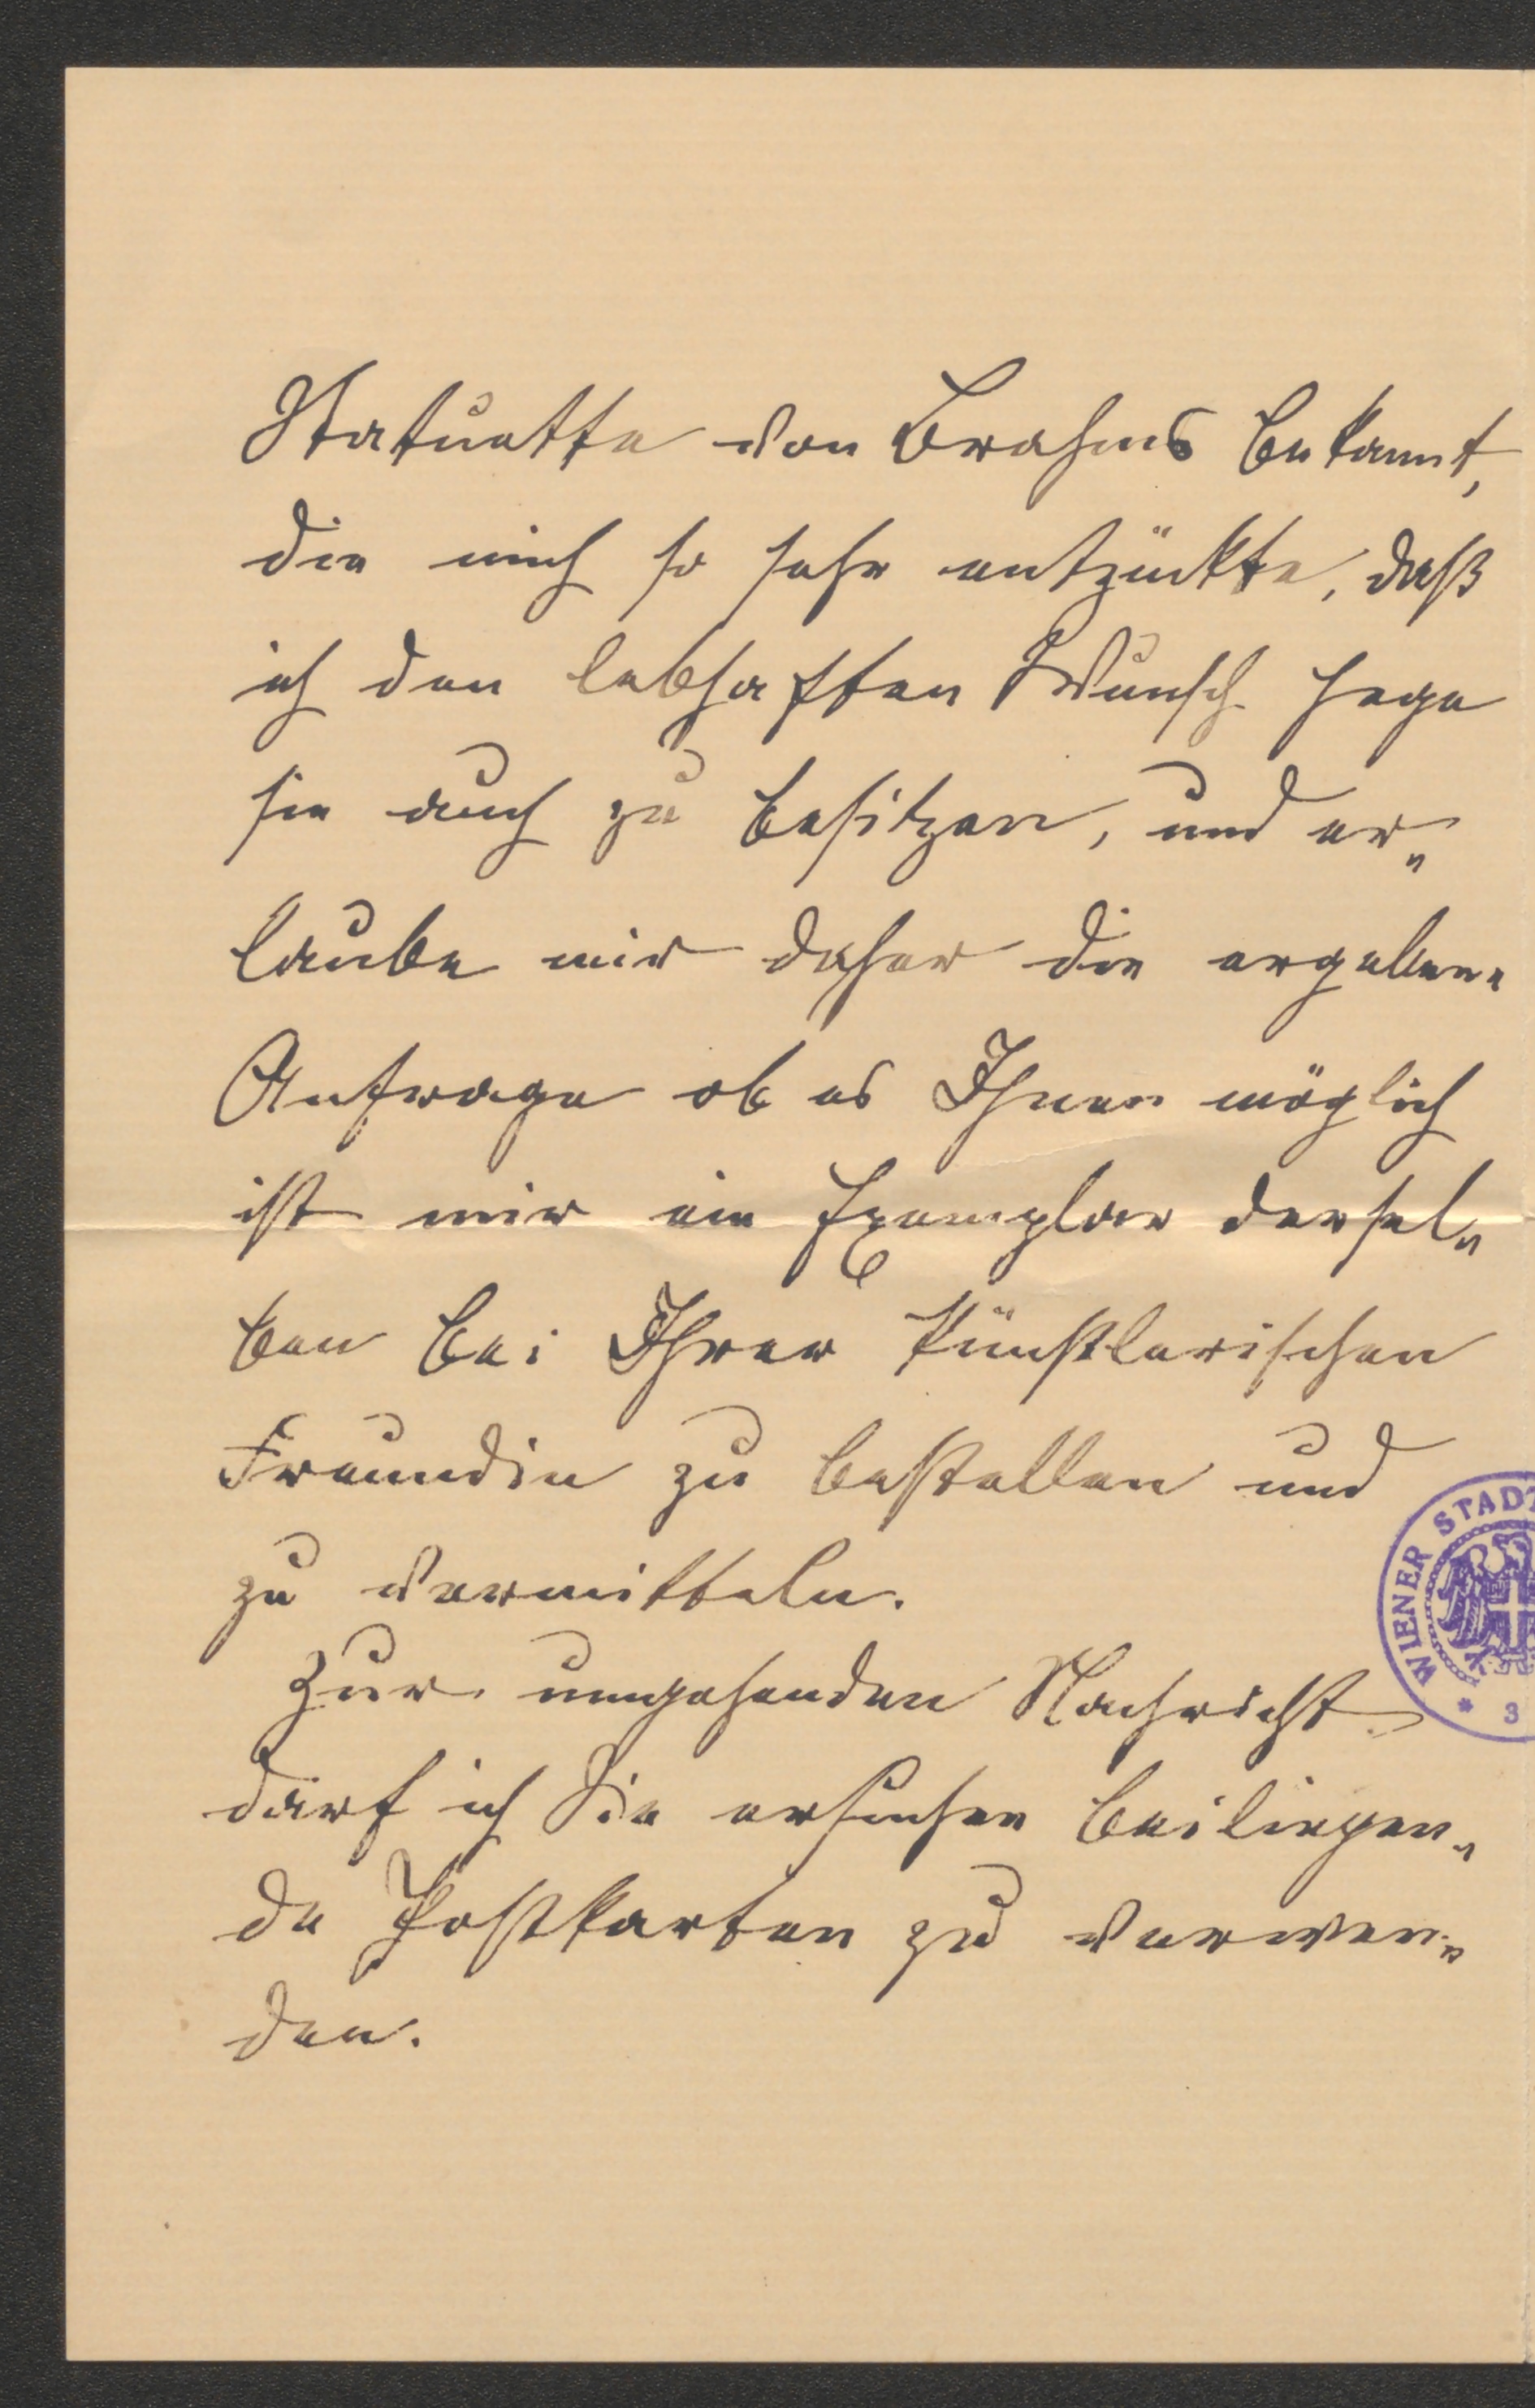 Statuette von Brahms bekannt,
die mich so sehr entzückte, daß
ich den lebhaften Wunsch hege
sie auch zu besitzen, und er„
laube mir daher die ergebene
Anfrage ob es Ihnen möglich
ist mir ein Exemplar dersel„
ben bei Ihrer künstlerischen
Freundin zu bestellen und
zu vermitteln.
Zur umgehenden Nachricht
darf ich Sie ersuchen beiliegen„
de Postkarten zu verwen„
den.
WIENER STADT
* 3